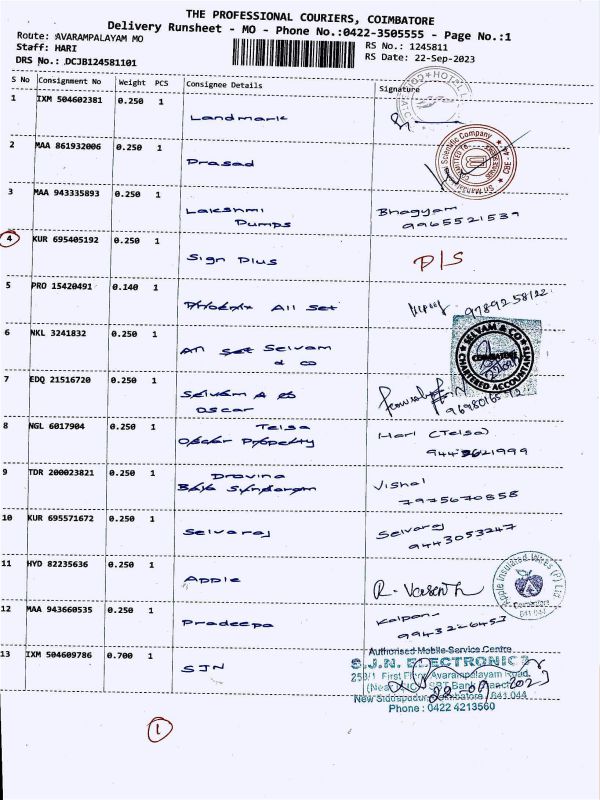 THE PROFESSIONAL COURIERS, COIMBATORE
Delivery Runsheet - MO - Phone No.:0422-3505555 - Page No.:1
Route: AVARAMPALAYAM MO
RS No.: 1245811
Staff: HARI
RS Date: 22-Sep-2023
DRS No.: DCJB124581101
S No Consignment No Weight PCS Consignee Details Signature
1 IXM 504602381 0.250 1
Landmark
2 MAA 861932006 0.250 1
Prasad
Scientific Company
CBE - 44
3 MAA 943335893 0.250 1
Lakshmi Bhagyam
Pumps 9965521539
4 KUR 695405192 0.250 1
Sign Plus P/S
5 PRO 15420491 0.140 1
All Set
6 NKL 3241832 0.250 1
Set Selvam
& co
SELVAM & CO
COIMBATORE
CHARTERED ACCOUNTANTS
7 EDQ 21516720 0.250 1
Selvam A
oscar
8 NGL 6017904 0.250 1
Telsa Hari (Telsa)
Property
9 TDR 200023821 0.250 1
Vishal
7975670858
10 KUR 695571672 0.250 1
Selvaraj Selvaraj
9443053247
11 HYD 82235636 0.250 1
Apple R. Vasanth
Apple Insulated Wires (P) Ltd
Coimbatore
641 044
12 MAA 943660535 0.250 1
Pradeepa Kalpana
13 IXM 504609786 0.700 1
SJN
Authorised Mobile Service Centre
S.J.N. ELECTRONICS
First Floor, Avarampalayam Road,
Coimbatore 641 044
Phone : 0422 4213560
22-09-2023
1